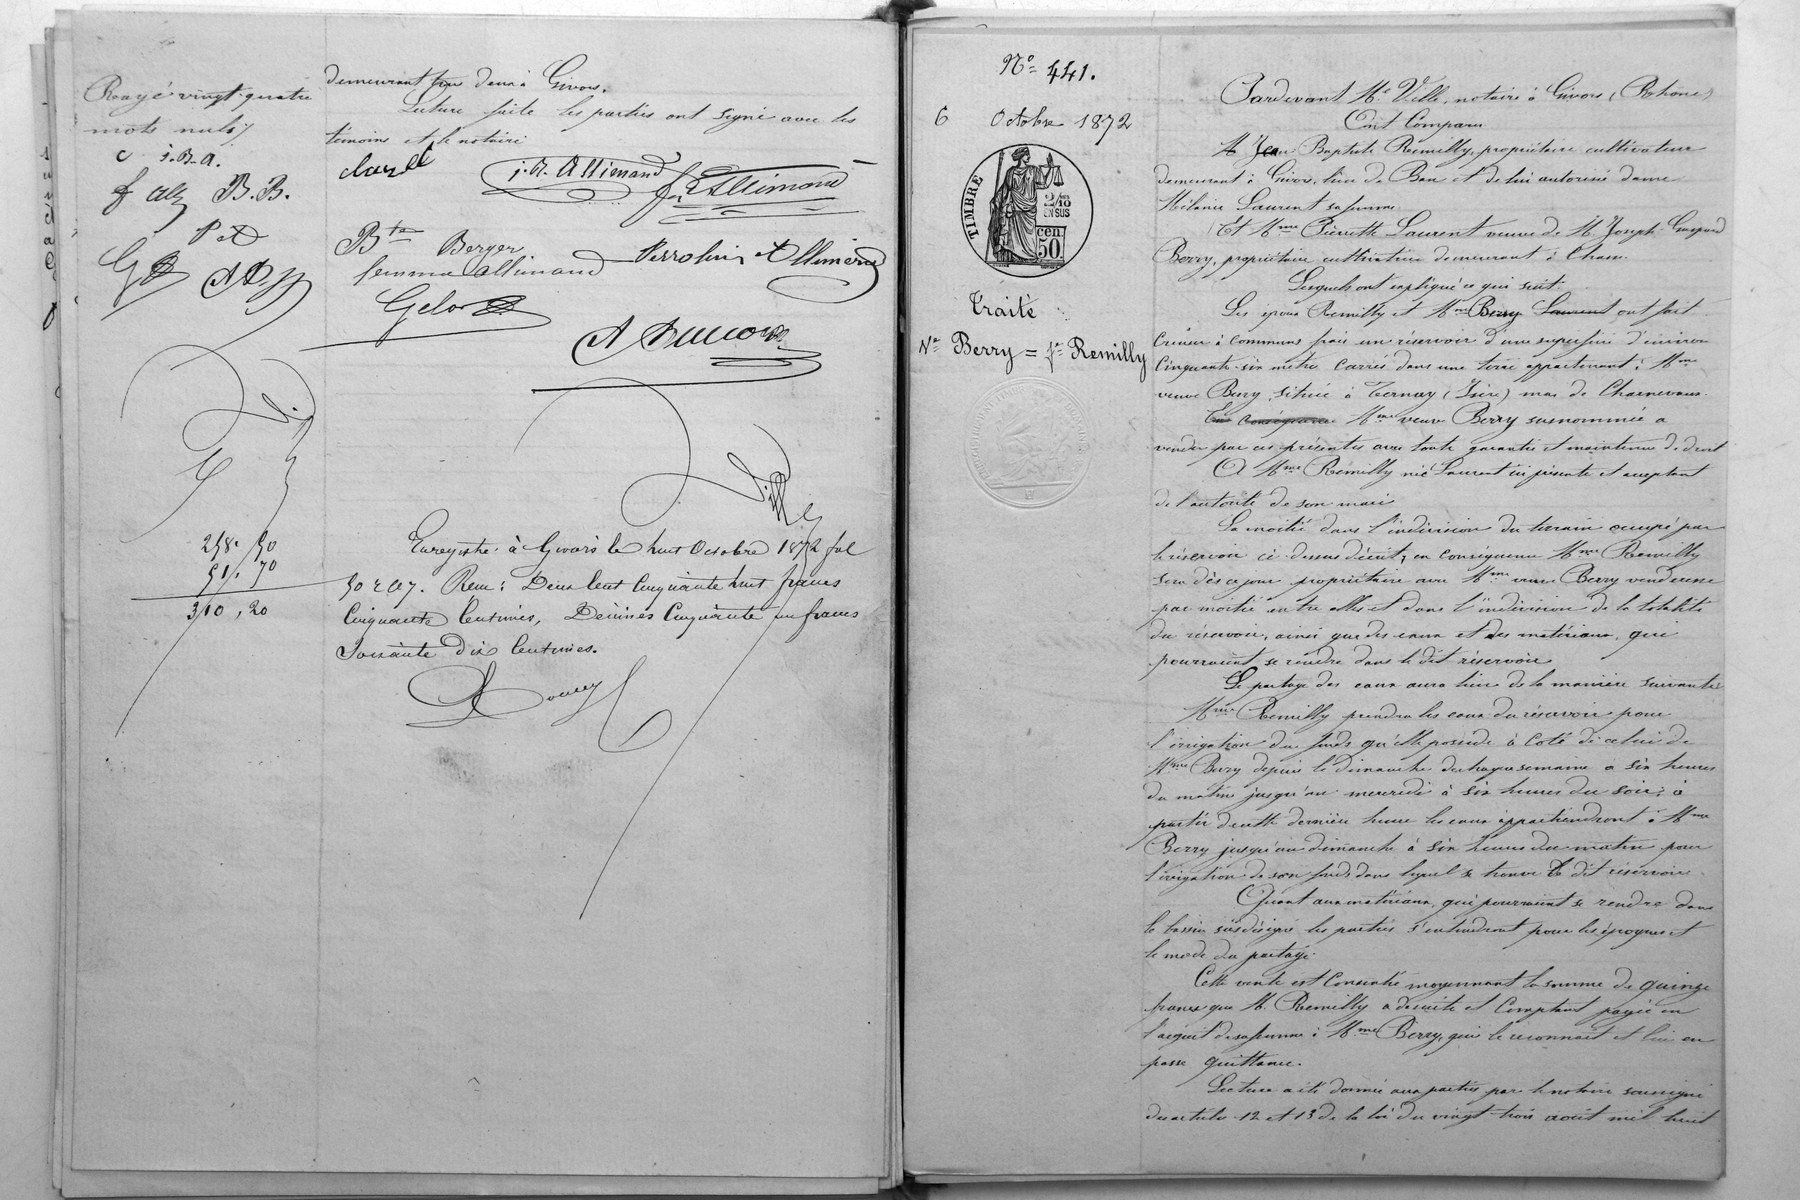 Rayé vingt-quatre
mots nuls
c j.B.a.
B.B.
demeurant tous deux à Givors.
Lecture faite les parties ont signé avec les
témoins et le notaire
j. B. Allimand
Allimand
Bte Berger
femme allimand
Perrolin
258. 50
51. 70
310, 20
Enregistré à Givors le huit Octobre 1872 fol
50 R Ct 7. Reçu : Deux Cent Cinquante huit francs
Cinquante Centimes, Décimes Cinquante un francs
Soixante dix Centimes.
No 441.
6 Octobre 1872
TIMBRE
2/10
EN SUS
cen
50
Traité
Ve Berry = fe Remilly
Pardevant Me Ville, notaire à Givors (Rhône)
Ont Comparu
M Jean Baptiste Remilly, propriétaire cultivateur
demeurant à Givors, lieu de Ban et de lui autorisé dame
Mélanie Laurent sa femme.
Et Mme Pierrette Laurent veuve de M Joseph Gaspard
Berry, propriétaire cultivatrice demeurant à Chan.
Lesquels ont expliqué ce qui suit.
Les époux Remilly et Mme Berry Laurent ont fait
Creuser à communs frais un réservoir d'une superficie d'environ
Cinquante-six mètres carrés dans une terre appartenant à Mme
veuve Berry, située à Ternay (Isère) mas de Charnevaux.
En conséquence Mme veuve Berry susnommée a
vendu par ces présentes avec toute garantie et maintenue de droit
A Mme Remilly née Laurent ici présente et acceptant
de l'autorité de son mari
La moitié dans l'indivision du terrain occupé par
le réservoir ci-dessus décrit, en conséquence Mme Remilly
sera dès ce jour propriétaire avec Mme veuve Berry venderesse
par moitié entre elles et dans l'indivision de la totalité
du réservoir, ainsi que des eaux et des matériaux, qui
pourraient se rendre dans le dit réservoir
Le partage des eaux aura lieu de la manière suivante
Mme Remilly prendra les eaux du réservoir pour
l'irrigation du fonds qu'elle possède à Coté de celui de
Mme Berry depuis le dimanche de chaque semaine à six heures
du matin jusqu'au mercredi à six heures du soir ; à
partir de cette dernière heure les eaux appartiendront à Mme
Berry jusqu'au dimanche à six heures du matin pour
l'irrigation de son fonds dans lequel se trouve le dit réservoir.
Quant aux matériaux, qui pourraient se rendre dans
le bassin susdésigné les parties s'entendront pour les époques et
le mode du partage.
Cette vente est Consentie moyennant la somme de quinze
francs que M. Remilly a de suite et Comptant payée en
l'acquit de sa femme à Mme Berry, qui le reconnait et lui en
passe quittance.
Lecture a été donnée aux parties par le notaire soussigné
des articles 12 et 13 de la loi du vingt-trois août mil huit